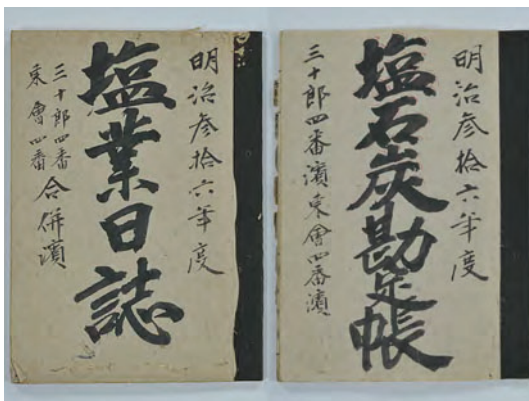 明治参拾六年度
塩石炭勘定帳
三十郎四番濱東會四番濱
明治参拾六年度
塩業日誌
三十郎四番
東會四番
合併濱